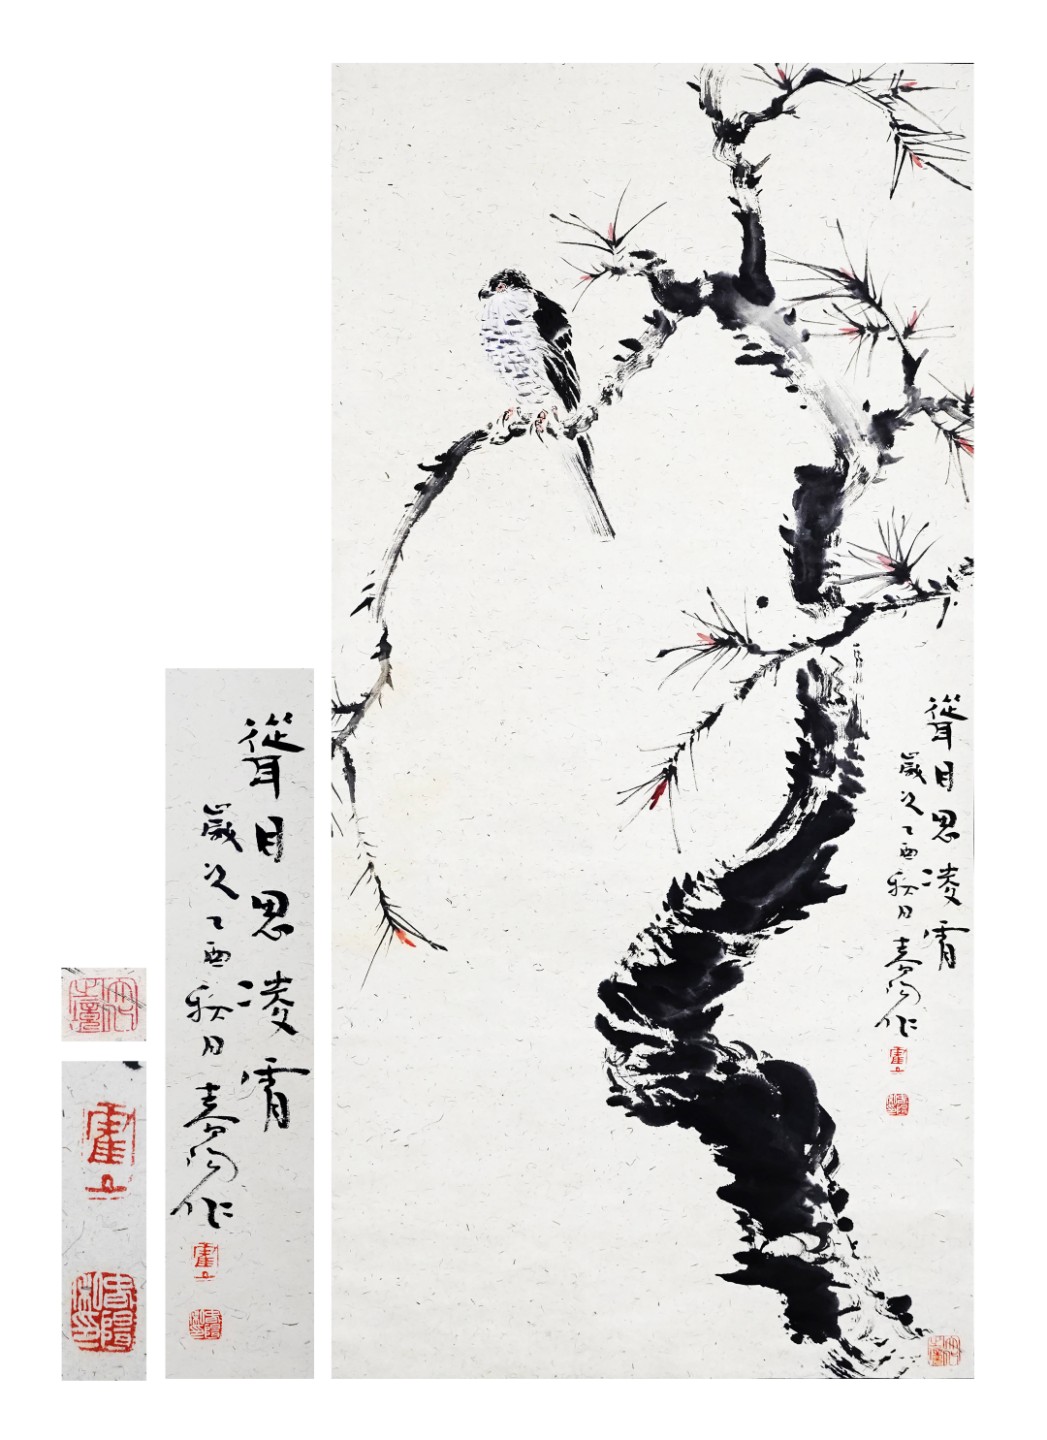 聳目思凌霄
歲次乙酉秋月春陽作
霍
聳目思凌霄
歲次乙酉秋月春陽作
霍